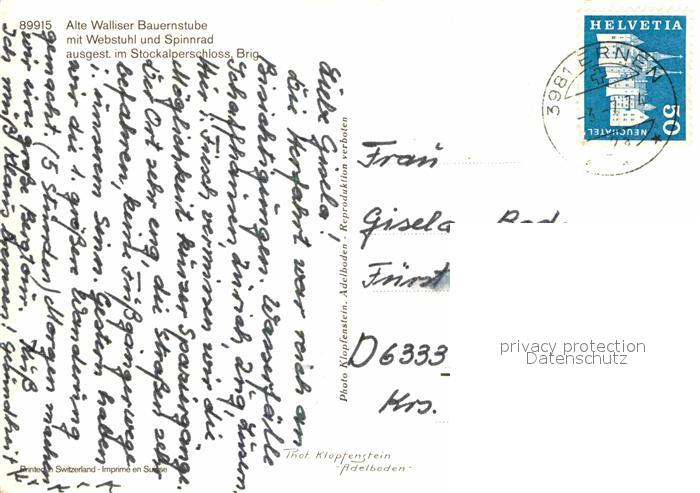 89915 Alte Walliser Bauernstube
mit Webstuhl und Spinnrad
ausgest. im Stockalperschloss, Brig.
HELVETIA
50
NEUCHATEL
3981 ERNEN
Liebe Gisela!
die Herfahrt war reich an
Besichtigungen. Wasserfälle
Schaffhausen, Zürich, Zug, Luzern.
Hier in Frisch vermissen wir die
Möglichkeit kurzer Spaziergänge.
Der Ort sehr eng, die Straßen sehr
befahren, keine Fußgängerwege
in unserem Sinn. Gestern haben
wir die 1. größere Wanderung
gemacht (5 Stunden) Morgen machen
wir eine große Bergtour. Tschüß
Ich muß Klaus Gesundheit
Photo Klopfenstein, Adelboden - Reproduktion verboten
Frau
Gisela
Fürst
D 6333
Krs.
privacy protection
Datenschutz
Phot. Klopfenstein
-Adelboden-
Printed in Switzerland - Imprimé en Suisse